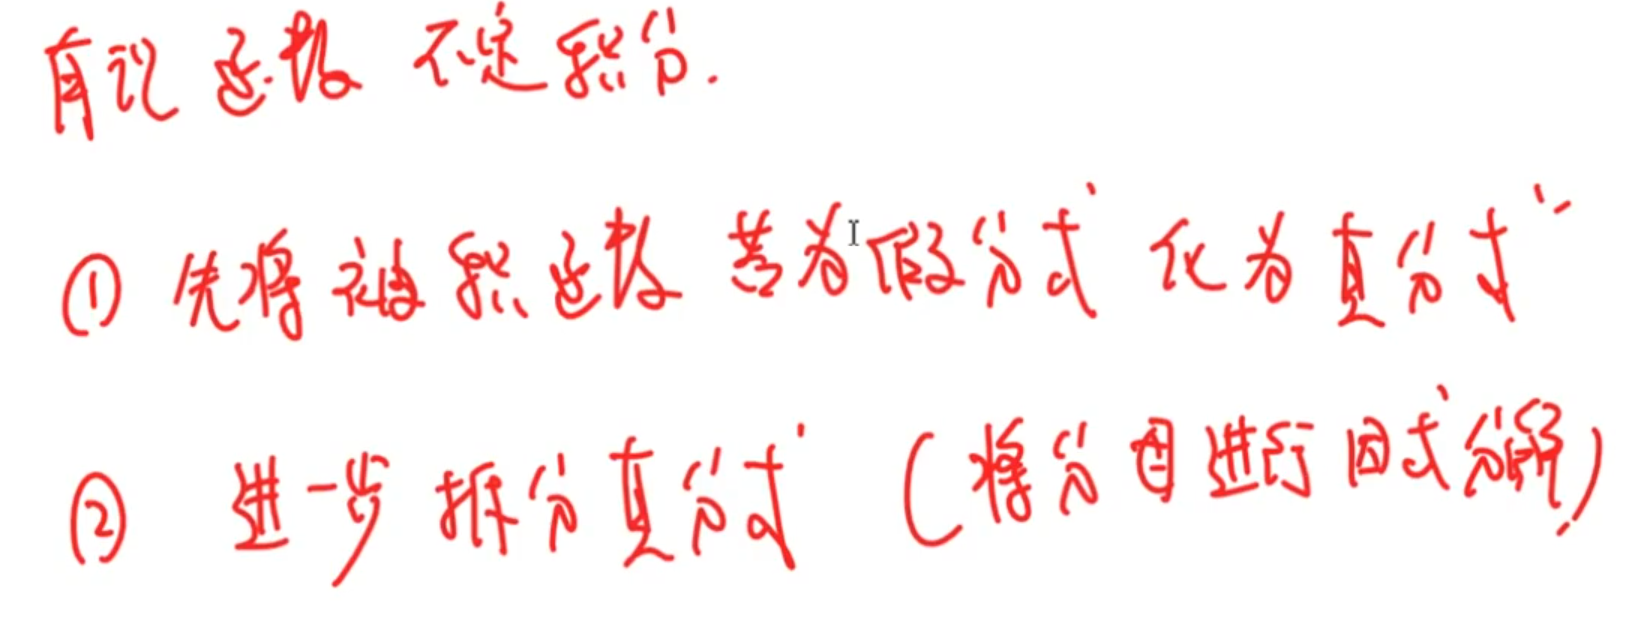 有理函数 不定积分.
① 先将被积函数 若为假分式 化为真分式
② 进一步 拆分真分式 (将分母进行因式分解)